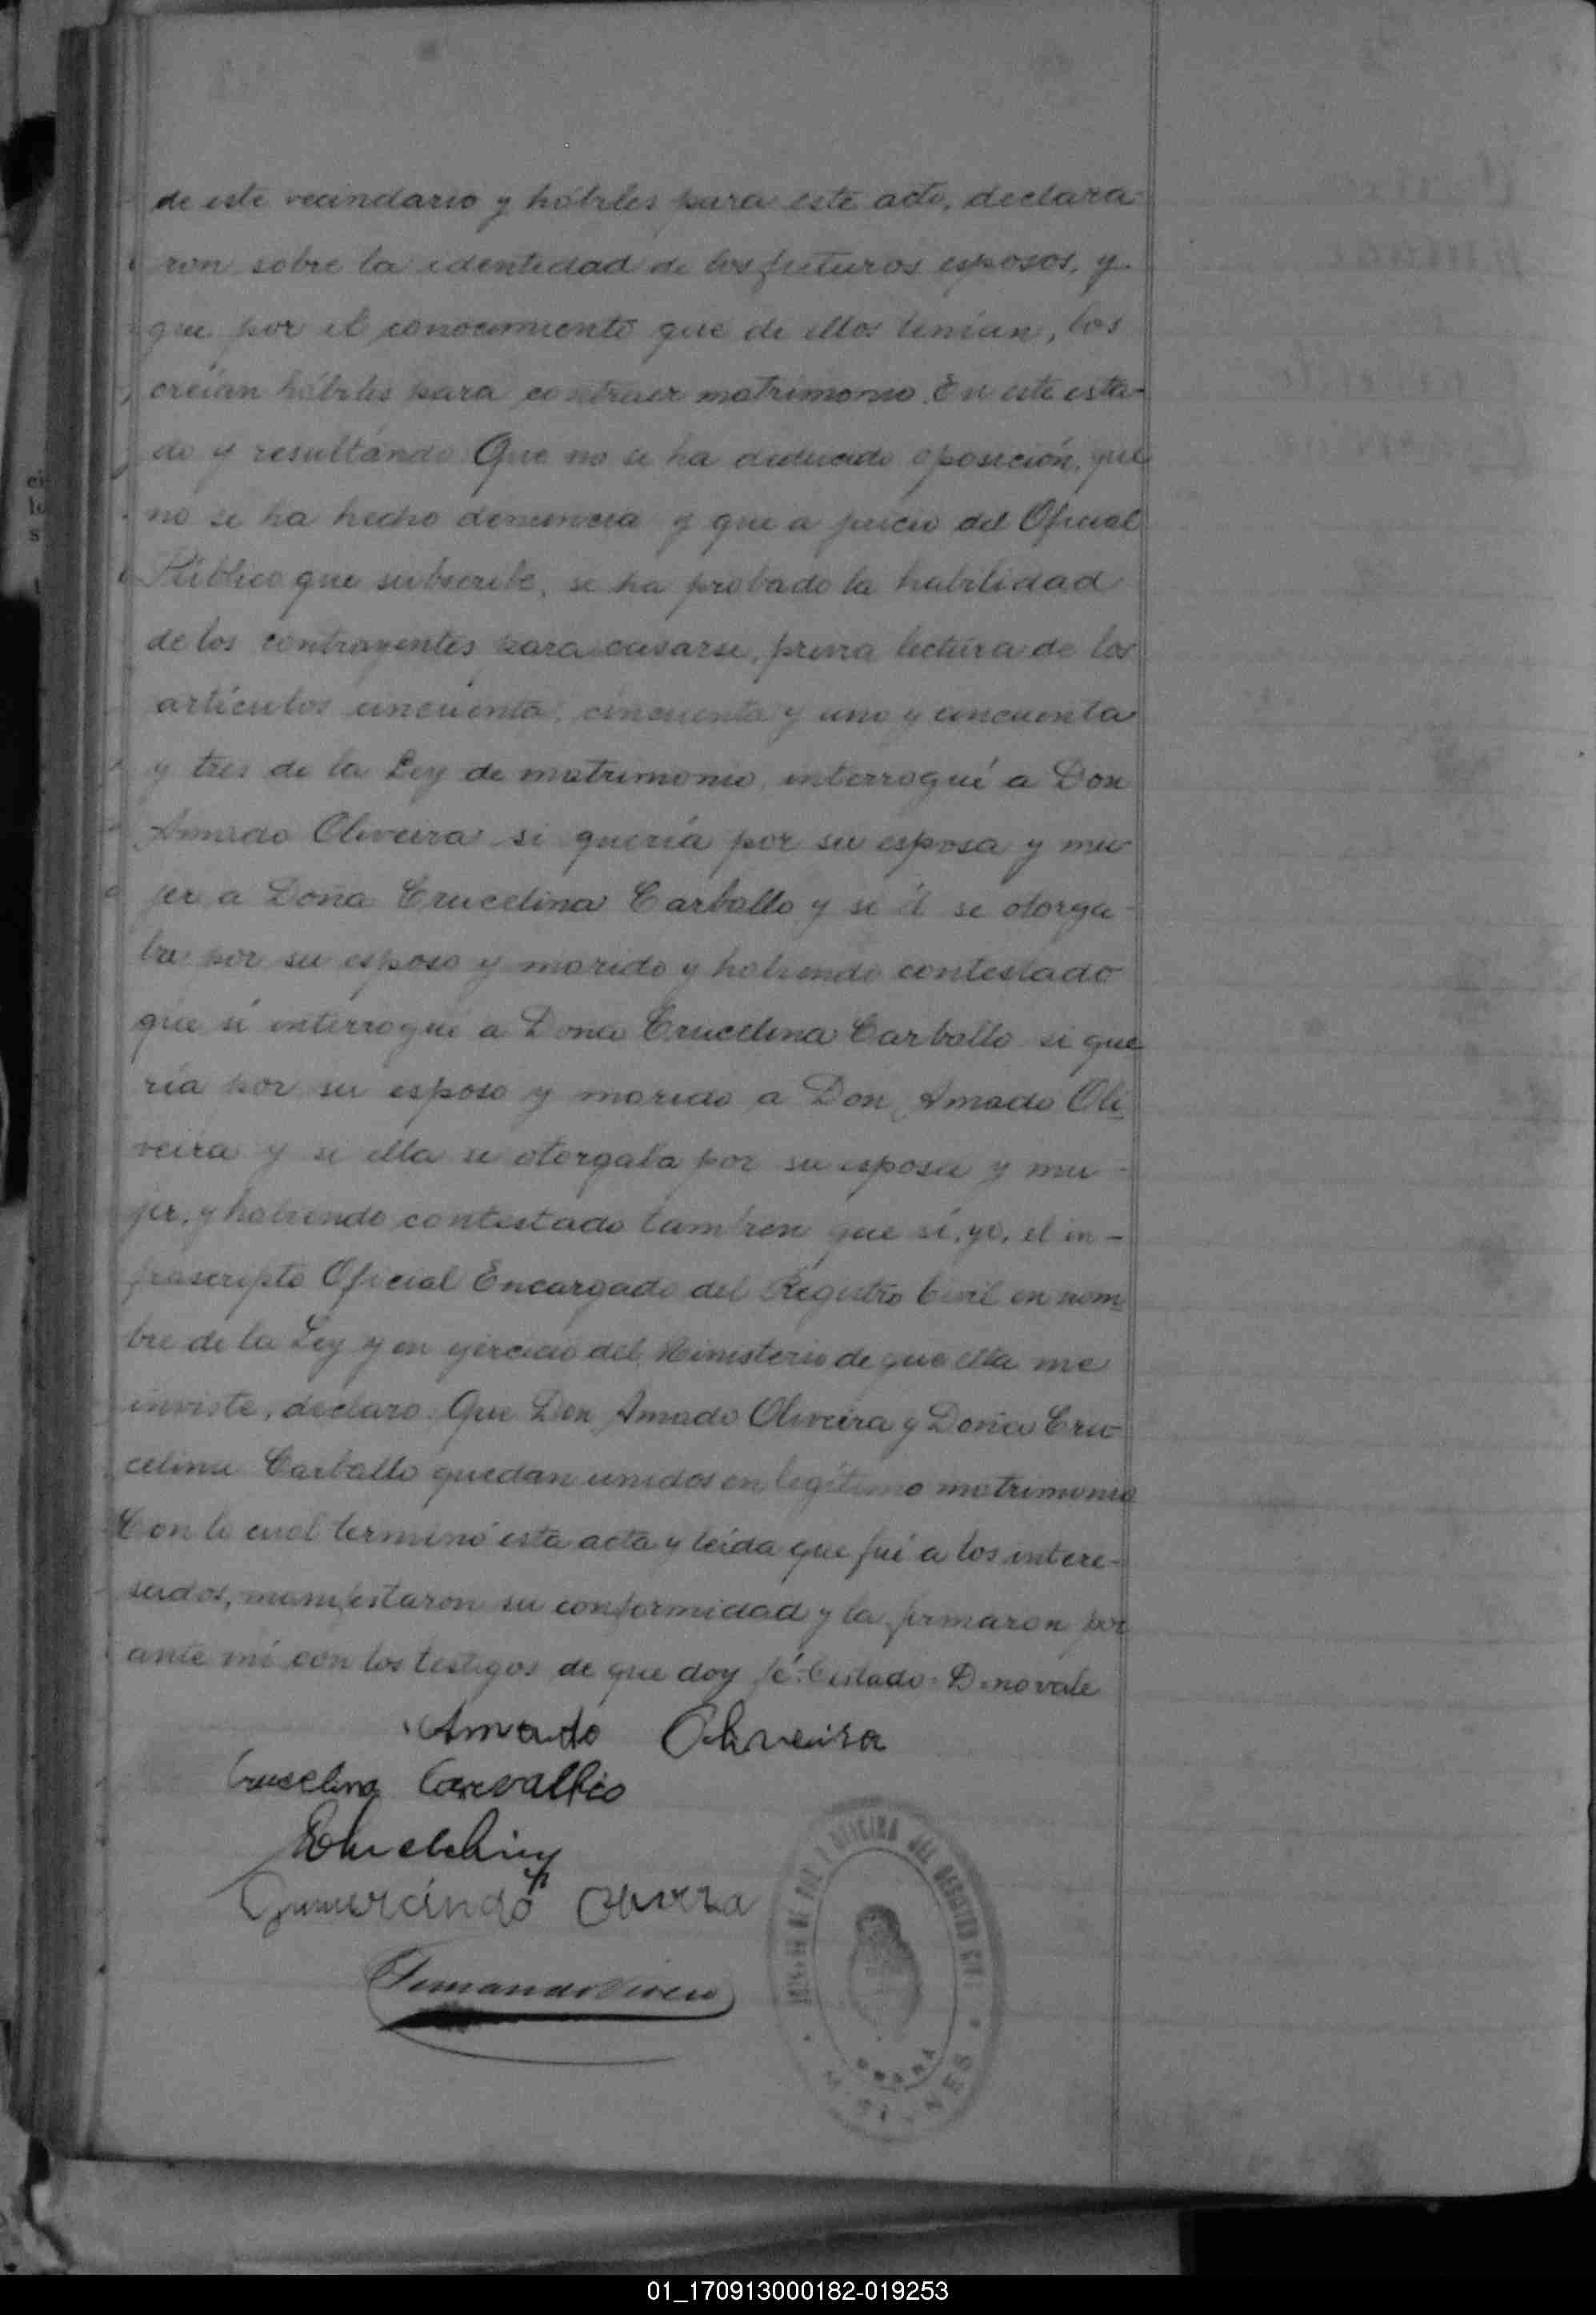 de este vecindario y hábiles para este acto, declara-
ron sobre la identidad de los futuros esposos, y
que por el conocimiento que de ellos tenían, los
creían hábiles para contraer matrimonio. En este esta-
do y resultando: Que no se ha deducido oposición, que
no se ha hecho denuncia y que a juicio del Oficial
Público que subscribe, se ha probado la habilidad
de los contrayentes para casarse, previa lectura de los
artículos cincuenta, cincuenta y uno y cincuenta
y tres de la Ley de matrimonio, interrogué a Don
Amado Oliveira si quería por su esposa y mu-
jer a Doña Crucelina Carballo y si él se otorga-
ba por su esposo y marido y habiendo contestado
que sí interrogué a Doña Crucelina Carballo si que
ría por su esposo y marido a Don Amado Oli
veira y si ella se otorgaba por su esposa y mu-
jer, y habiendo contestado tambien que sí, yo, el in-
frascripto Oficial Encargado del Registro Civil en nom
bre de la Ley y en ejercicio del Ministerio de que ella me
inviste, declaro: Que Don Amado Oliveira y Doña Cru-
celina Carballo quedan unidos en legítimo matrimonio
Con lo cual terminó esta acta y leída que fué a los intere-
sados, manifestaron su conformidad y la firmaron por
ante mí con los testigos de que doy fé. Testado: D=no vale
Amado Oliveira
Cruselina Carvallio
Gumercindo Olivera
Fernando
OFICINA DEL REGISTRO CIVIL
MISIONES
01_170913000182-019253